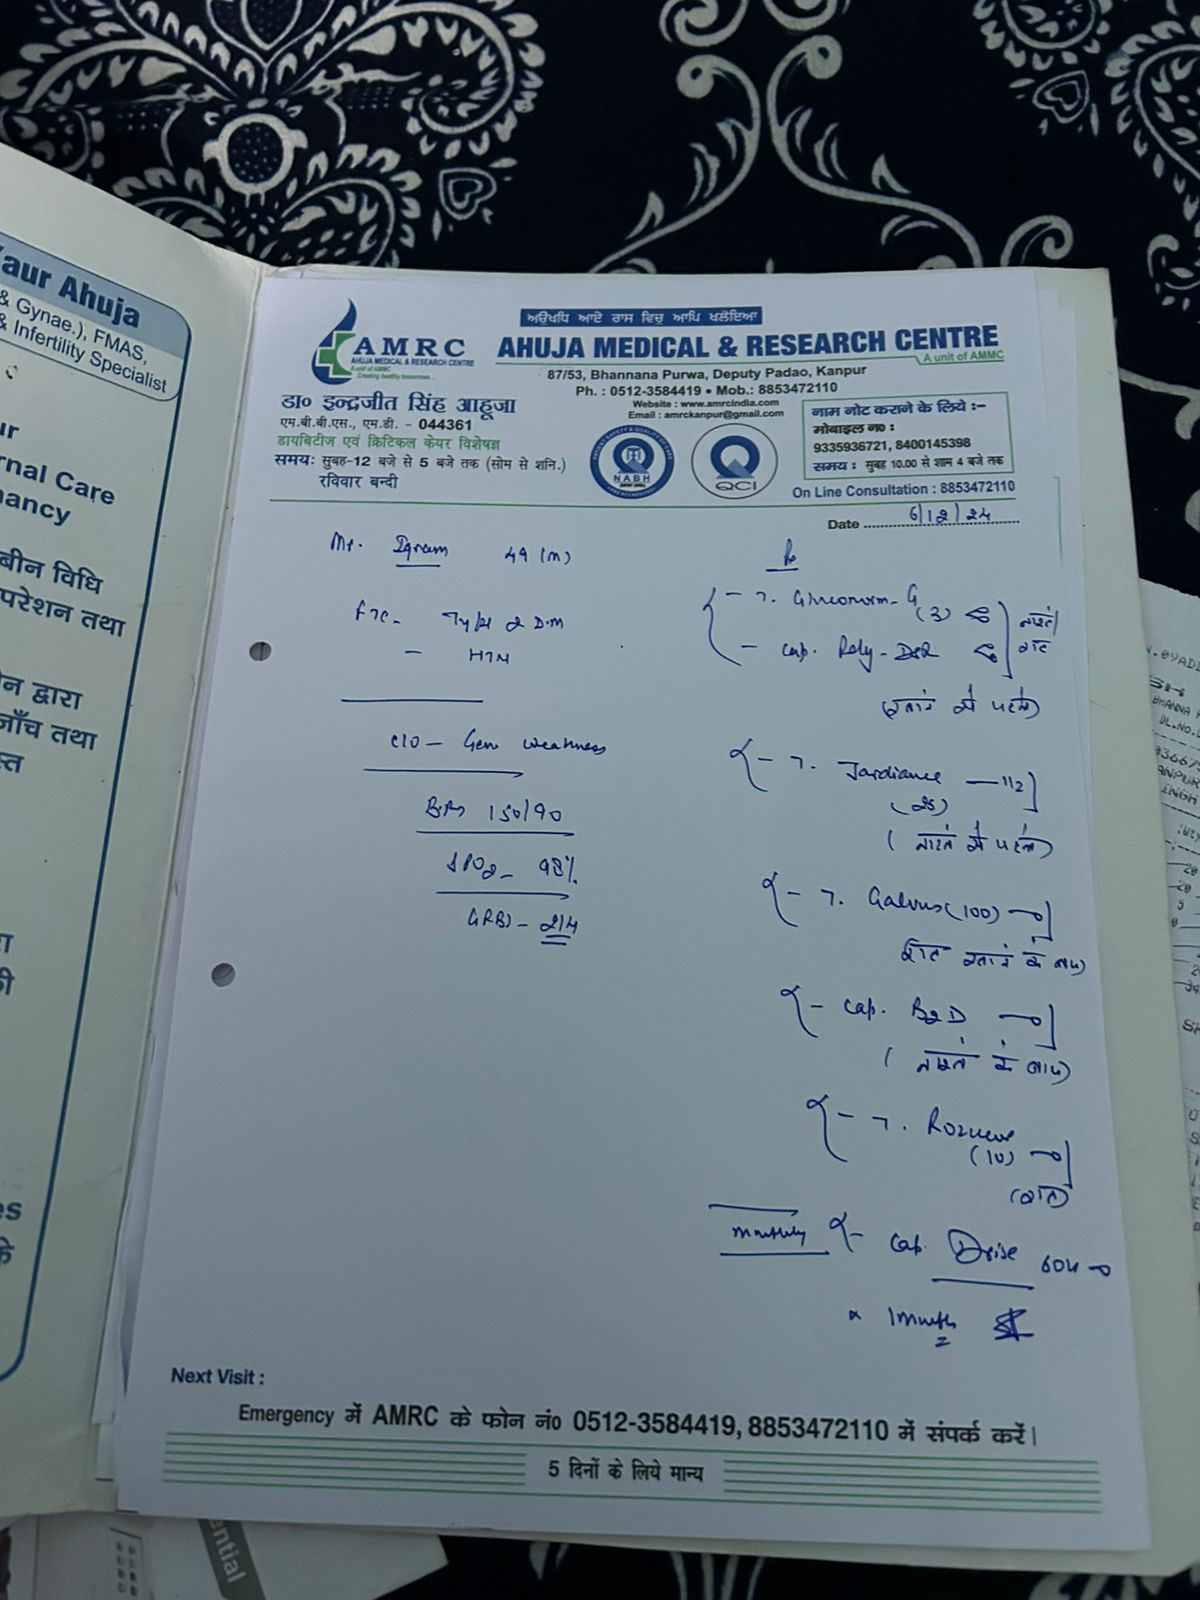 aur Ahuja
& Gynae.), FMAS,
& Infertility Specialist
ur
rnal Care
nancy
बीन विधि
परेशन तथा
न द्वारा
जाँच तथा
स्त
ਅਉਖਧਿ ਆਏ ਰਾਸ ਵਿਚੁ ਆਪਿ ਖਲੋਇਆ
AMRC
AHUJA MEDICAL & RESEARCH CENTRE
A unit of AMMC
Creating healthy tomorrows...
AHUJA MEDICAL & RESEARCH CENTRE
A unit of AMMC
87/53, Bhannana Purwa, Deputy Padao, Kanpur
Ph. : 0512-3584419 • Mob.: 8853472110
Website : www.amrcindia.com
Email : amrckanpur@gmail.com
डा० इन्द्रजीत सिंह आहूजा
एम.बी.बी.एस., एम.डी. - 044361
डायबिटीज एवं क्रिटिकल केयर विशेषज्ञ
समय: सुबह-12 बजे से 5 बजे तक (सोम से शनि.)
रविवार बन्दी
NABH
QCI
नाम नोट कराने के लिये :-
मोबाइल न० :
9335936721, 8400145398
समय : सुबह 10.00 से शाम 4 बजे तक
On Line Consultation : 8853472110
Date 6/12/24
Mr. 49 (M)
Type 2 D.M
- HTN
C/O - Gen weakness
150/90
SPO2 - 98%
GRBS - 214
Rx
- T. Gluconorm-G (3)
- Cap. Rely-DSR
(खाने से पहले)
- T. Jardiance - 1/2
(25)
(नाश्ते से पहले)
- T. Galvus (100)
रात खाने के बाद)
- Cap. B2D
(नाश्ते के बाद)
- T. Rozucor
(10)
(रात)
Monthly - Cap. Drise 60K
x 1 month
Next Visit :
Emergency में AMRC के फोन नं० 0512-3584419, 8853472110 में संपर्क करें।
5 दिनों के लिये मान्य
ential